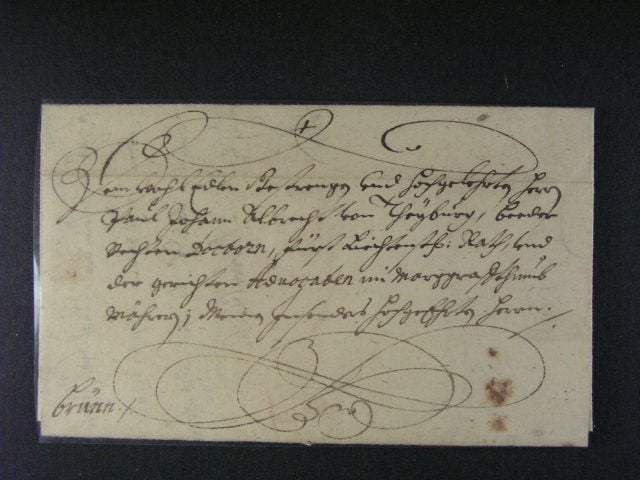 Dem wohl Edlen Gestrengen und Hochgelehrten Herrn
Paul Johann Albrecht von Theyburg, beeder
Rechten Doctorn, fürst Liechtenst: Rath, und
der gerichten Advocaten im Marggraffthumb
Mähren; Meinem Insonders Hochgeehrten Herrn
brünn